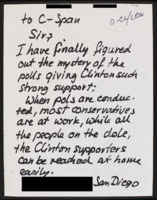 to C-Span
Sirs
I have finally figured
out the mystery of the
polls giving Clinton such
strong support:
When polls are conduc-
ted, most conservatives
are at work, while all
the people on the dole,
the Clinton supporters
can be reached at home
easily.
San Diego